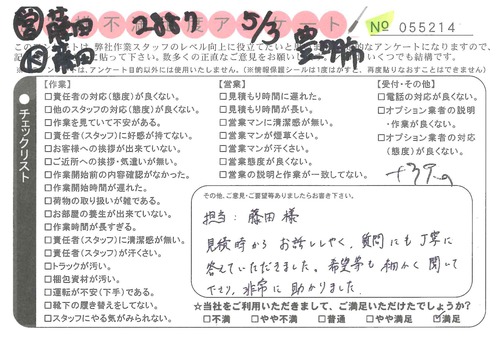 営 藤田 2887 5/3 豊明市
作 藤田
不満度アンケート
No 055214
このアンケートは、弊社作業スタッフのレベル向上に役立てたいと
的なアンケートになりますので、
に貼って下さい。数多くの正直なご意見をお願い
いくつでも結構です。
アンケート目的以外には使用いたしません。(※情報保護シールは1度はがすと、再度貼りなおすことはできません)
チェックリスト
【作業】
□責任者の対応(態度)が良くない。
□他のスタッフの対応(態度)が良くない。
□作業を見ていて不安がある。
□責任者(スタッフ)に好感が持てない。
□お客様への挨拶が出来ていない。
□ご近所への挨拶・気遣いが無い。
□作業開始前の内容確認がなかった。
□作業開始時間が遅れた。
□荷物の取り扱いが雑である。
□お部屋の養生が出来ていない。
□作業時間が長すぎる。
□責任者(スタッフ)に清潔感が無い。
□責任者(スタッフ)が汗くさい。
□トラックが汚い。
□梱包資材が汚い。
□運転が不安(下手)である。
□靴下の履き替えをしてない。
□スタッフにやる気がみられない。
【営業】
□見積もり時間に遅れた。
□見積もり時間が長い。
□営業マンに清潔感が無い。
□営業マンが煙草くさい。
□営業マンが汗くさい。
□営業態度が良くない。
□営業の説明と作業が一致してない。
【受付・その他】
□電話の対応が良くない。
□オプション業者の説明
・作業が良くない。
□オプション業者の対応
(態度)が良くない。
その他、ご意見・ご要望等ありましたらお書き下さい。
担当：藤田様
見積時から お話ししやすく、質問にも丁寧に
答えていただきました。希望等も 細かく聞いて
下さり、非常に助かりました。
☆当社をご利用いただきまして、ご満足いただけたでしょうか?
□不満 □やや不満 □普通 □やや満足 ☑満足